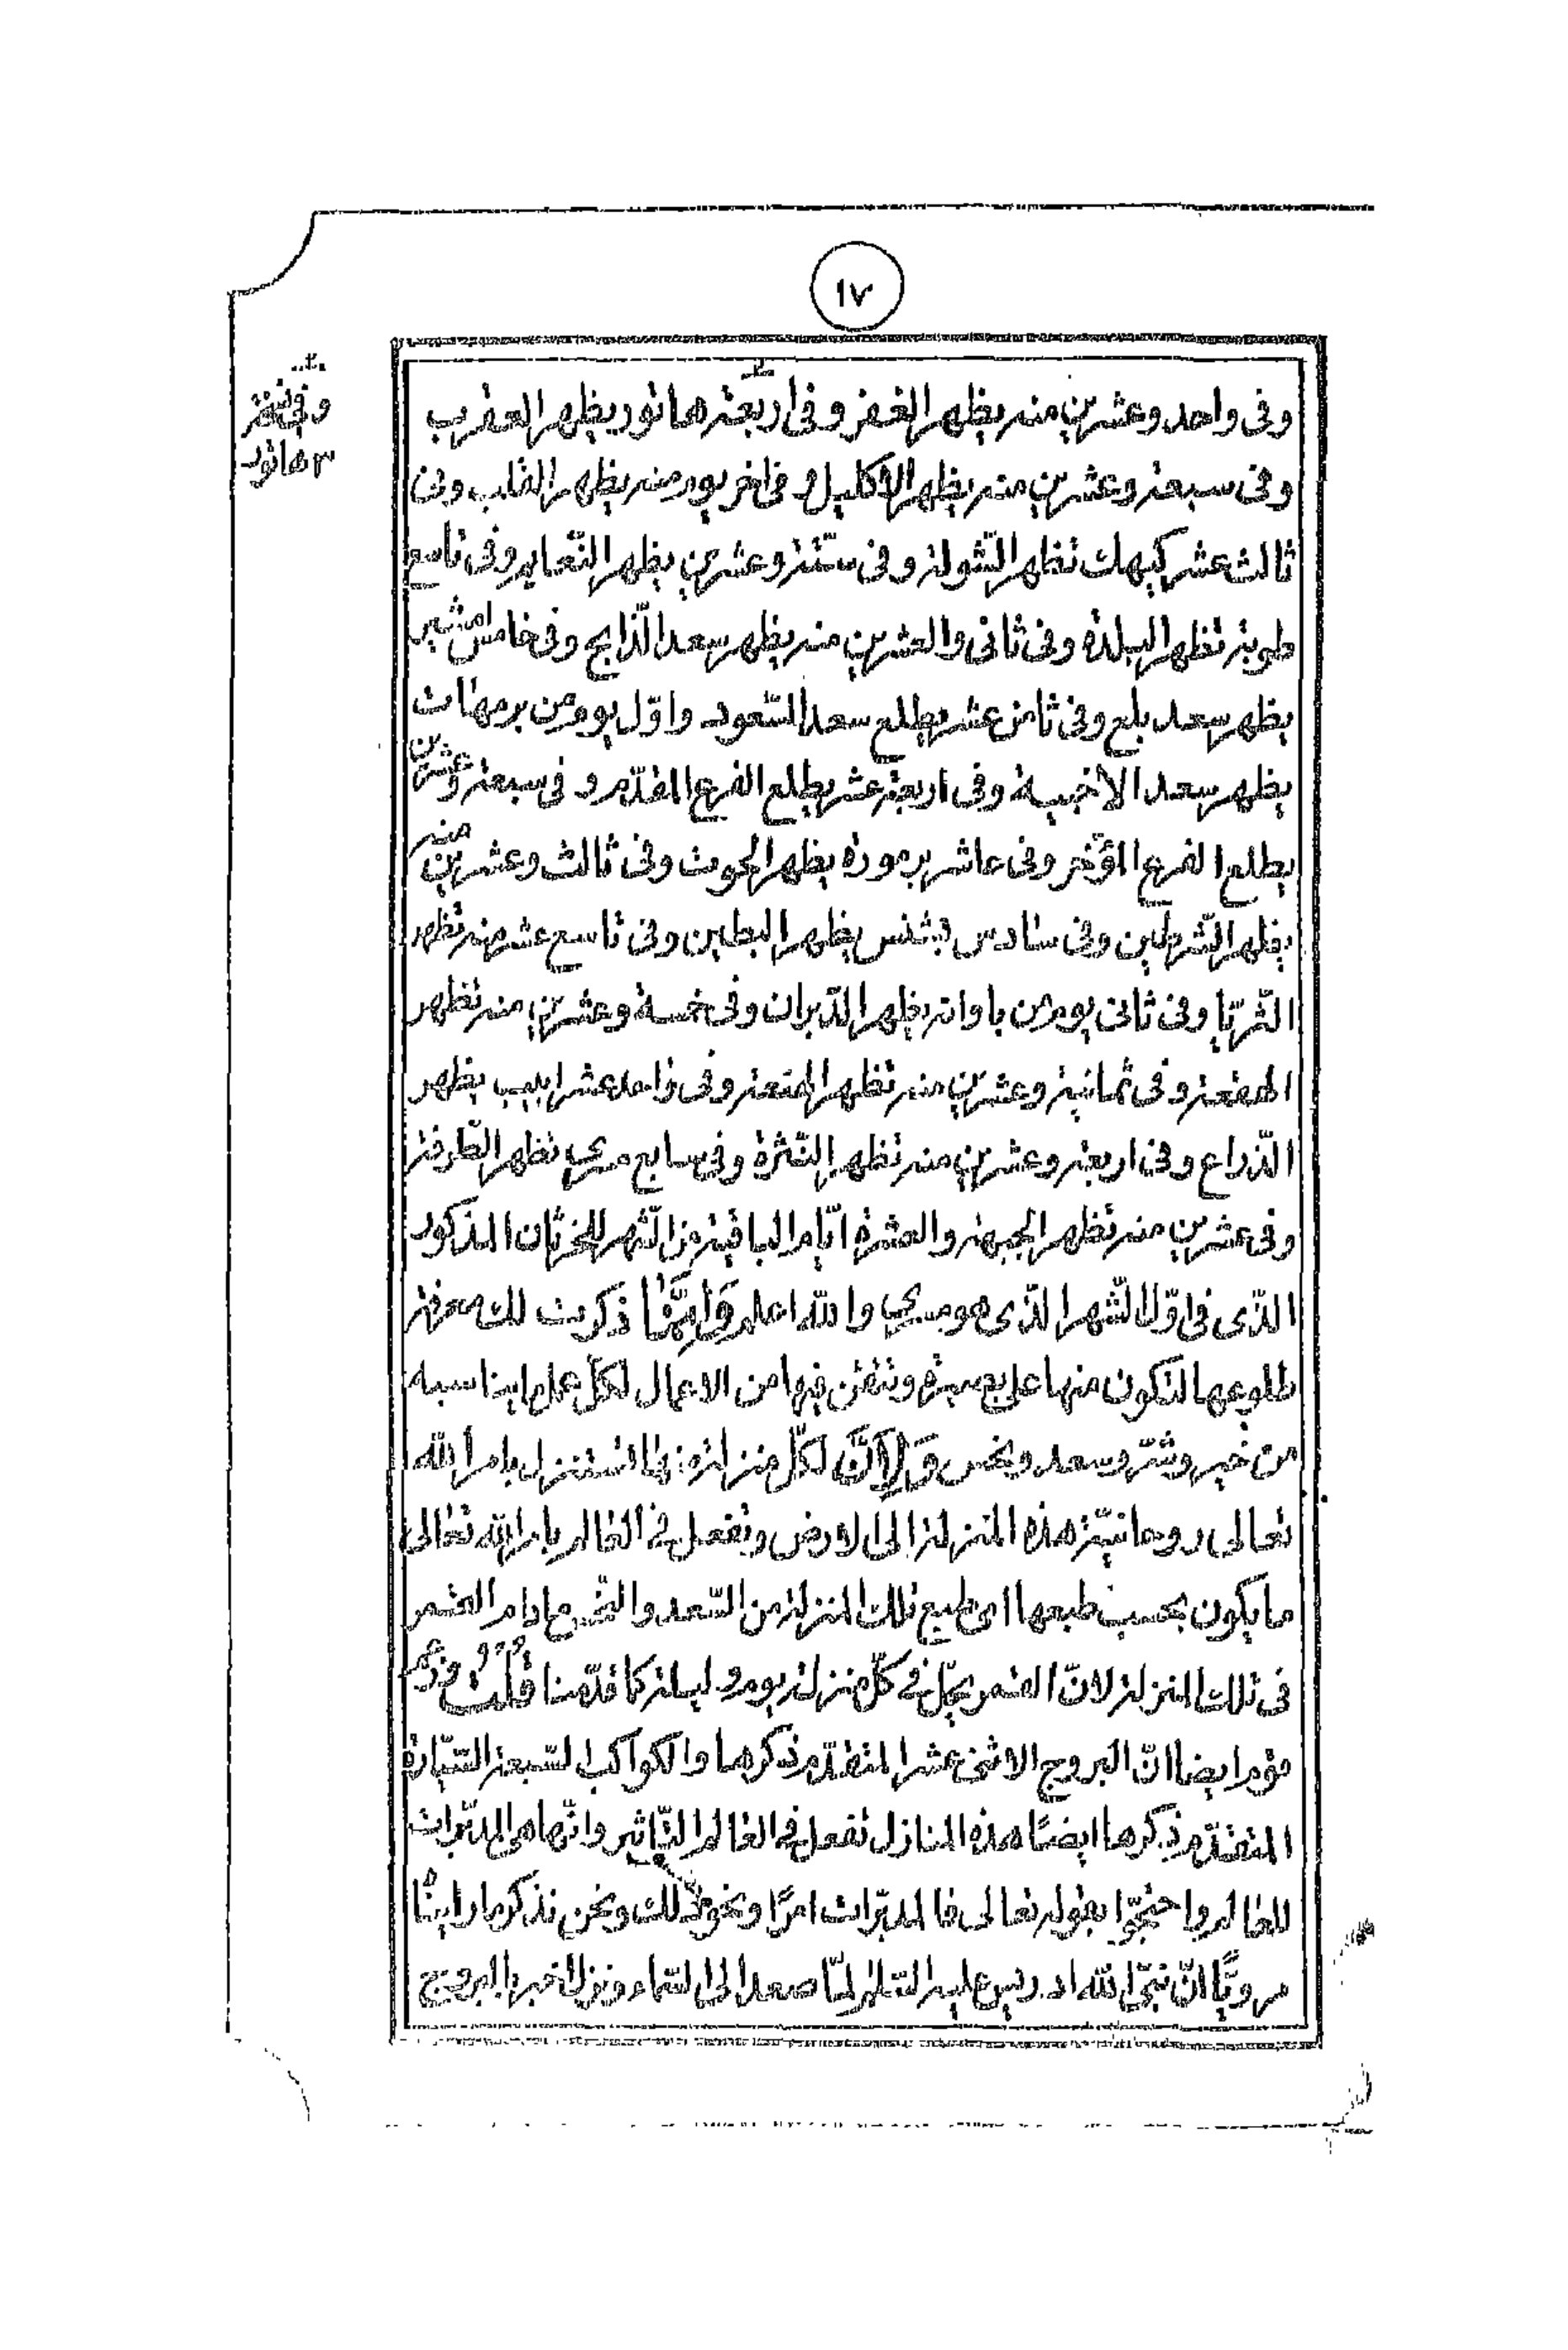 ١٧
وفى واحد وعشرين منه يظهر الغفر وفى اربعة هاتور يظهر العقرب
وفى سبعة وعشرين منه يظهر الاكليل وفى اخر يوم منه يظهر القلب وفى
ثالث عشر كيهك تظهر الشّولة وفى ستّة وعشرين يظهر النّعايم وفى تاسع
طوبة تظهر البلدة وفى ثانى والعشرين منه يظهر سعد الذّابح وفى خامس امشير
يظهر سعد بلع وفى ثامن عشر يطلع سعد السّعود واوّل يوم من برمهات
يظهر سعد الاخبية وفى اربعة عشر يطلع الفرع المقدّم وفى سبعة وعشرين
يطلع الفرع المؤخّر وفى عاشر برموده يظهر الحوت وفى ثالث وعشرين منه
يظهر الشّرطين وفى سادس بشنس يظهر البطين وفى تاسع عشر منه تظهر
الثّريّا وفى ثانى يوم من باوانه يظهر الدّبران وفى خمسة وعشرين منه تظهر
الهقعة وفى ثمانية وعشرين منه تظهر الهنعة وفى واحد عشر ابيب يظهر
الذّراع وفى اربعة وعشرين منه تظهر النّثرة وفى سابع مسرى تظهر الطّرفة
وفى عشرين منه تظهر الجبهة والعشرة ايّام الباقية من الشّهر للخرثان المذكور
الذّى فى اوّل الشّهر الذّى هو مسرى والله اعلم وَاِنَّمَا ذكرت لك معرفة
طلوعها لتكون منها على بصيرة وتتقن فيها من الاعمال لكلّ عمل ما يناسبه
من خير وشرّ وسعد ونحس وَلِاَنَّ لكلّ منزلة منها تستنزل بامر الله
تعالى روحانيّة هذه المنزلة الى الارض وتفعل فى العالم بامر الله تعالى
ما يكون بحسب طبعها اى طبع تلك المنزلة من السّعد والنّحس مادام القمر
فى تلك المنزلة لانّ القمر يحلّ فى كلّ منزلة يوم وليلة كما قدّمنا قُلْتُ وزعم
قوم ايضا انّ البروج الاثنى عشر المتقدّم ذكرها والكواكب السّبعة السّيّارة
المتقدّم ذكرها ايضًا هذه المنازل تفعل فى العالم التّاثير وانّها هى المدبّرات
للعالم واحتجّوا بقوله تعالى فالمدبّرات امرًا ونحو ذلك ونحن نذكر ما رايناه
مرويًّا انّ نبىّ الله ادريس عليه السّلام لمّا صعد الى السّماء ونزل اخبر بالبروج
وفى نسخة
٣ هاتور